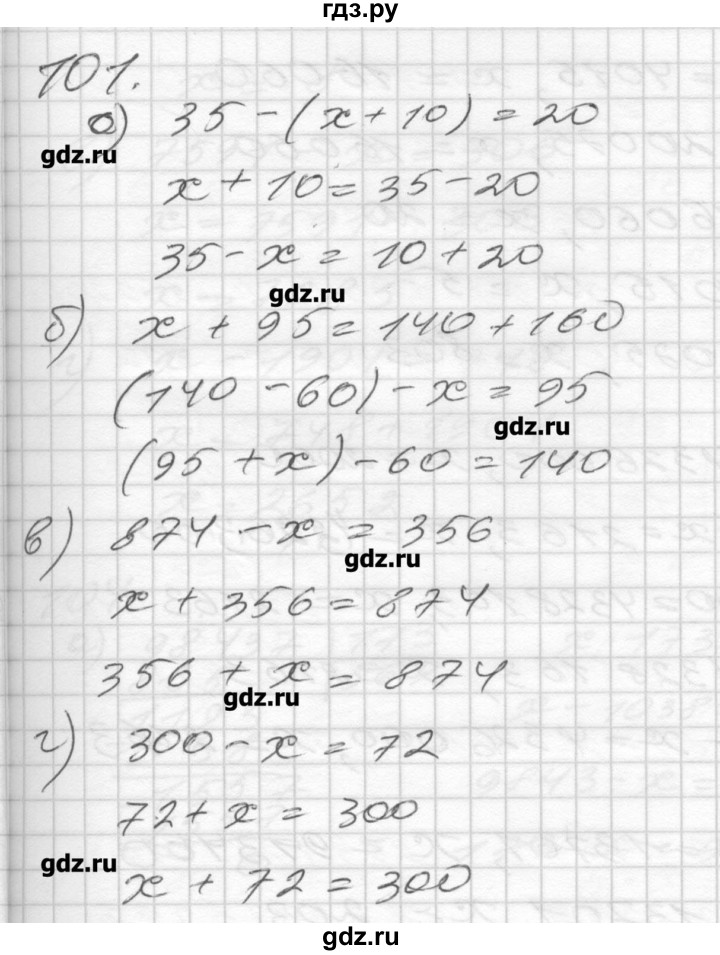 гдз.ру
101.
а) 35 - (x + 10) = 20
gdz.ru
x + 10 = 35 - 20
35 - x = 10 + 20
gdz.ru
б) x + 95 = 140 + 160
(140 - 60) - x = 95
gdz.ru
(95 + x) - 60 = 140
в) 874 - x = 356
gdz.ru
x + 356 = 874
356 + x = 874
gdz.ru
г) 300 - x = 72
72 + x = 300
gdz.ru
x + 72 = 300
gdz.ru